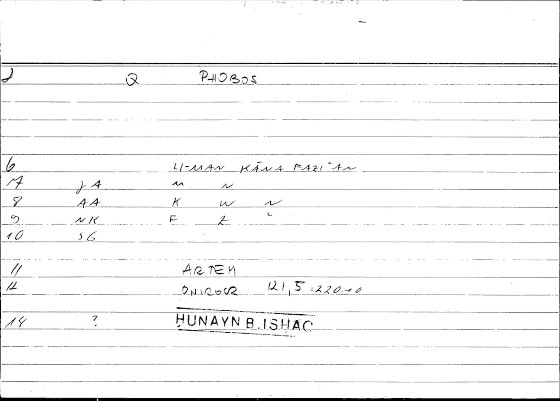 2 Q PHOBOS
6 LI-MAN KĀNA FAZIʿAN
7 JA M N
8 AA K W N
9 NK F Z ʿ
10 SG
11 ARTEM
12 ONIROCR 121,5 = 220.10
14 ? ḤUNAYN B. ISḤĀQ